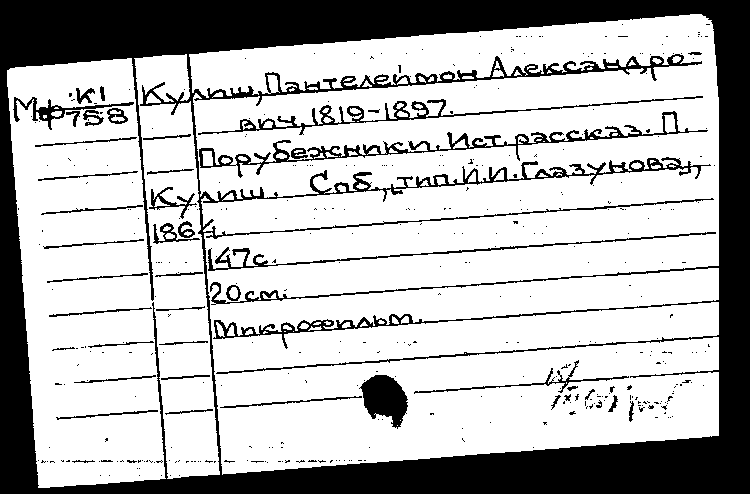 Мф К1/758
Кулиш, Пантелеймон Александро-
вич, 1819-1897.
Порубежники. Ист. рассказ. П.
Кулиш. Спб., тип. И.И. Глазунова,
1864.
147с.
20см.
Микрофильм.